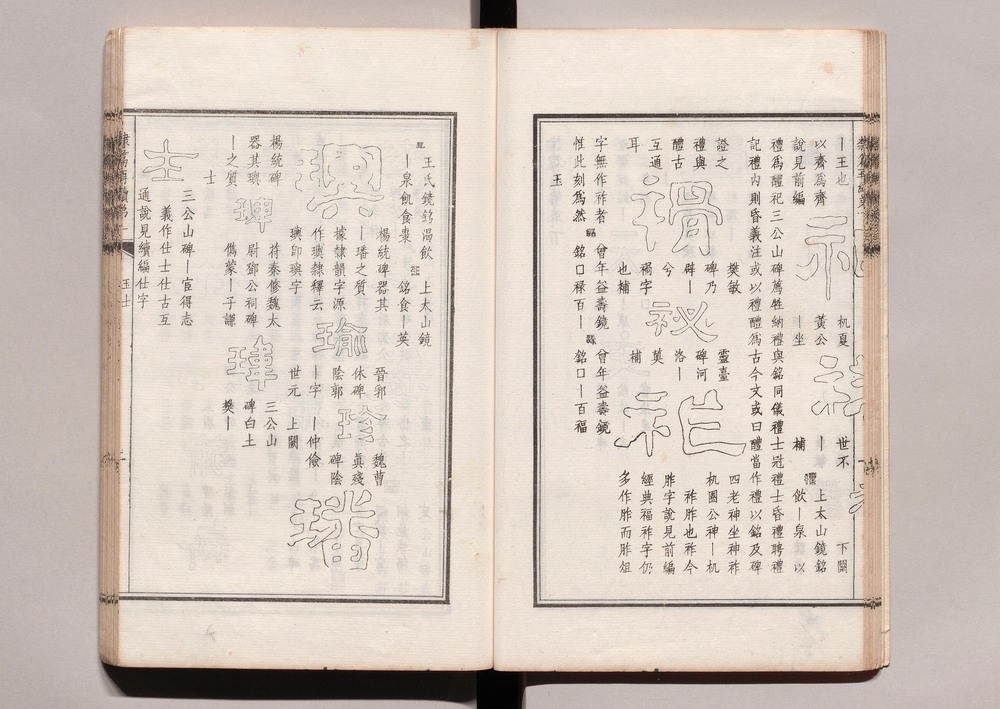 丨王也
以齊爲齊
說見前編
杌夏
黃公
丨坐
世不
補
下闕
上太山鏡銘
飲丨泉 以
禮爲醴祀三公山碑薦牲納禮與銘同儀禮士冠禮士昏禮聘禮
記禮内則昏義注或以禮醴爲古今文或曰醴當作禮以銘及碑
證之
禮與
醴古
互通
耳
樊敏
碑乃
辟丨
兮
禍字
也補
祕
靈臺
碑河
洛丨
莫
補
祚
四老神坐神祚
杌圈公神丨杌
祚胙也祚今
胙字說見前編
經典福祚字仍
多作胙而胙俎
字無作祚者
惟此刻爲然
曾年益壽鏡
銘口祿百丨
曾年益壽鏡
銘口丨百福
玉
王氏鏡銘渴飲
丨泉飢食棗
上太山鏡
銘食丨英
璵
楊統碑器其
丨璠之質
據隸韻字源
作璵隸釋云
璵卽璵字
瑜
晉郭
休碑
陰郭
丨字
世元
珍
魏曹
眞殘
碑陰
丨仲儉
上闕
璠
楊統碑
器其璵
丨之質
珥
苻秦修魏太
尉鄧公祠碑
儁蒙丨子諫
瑋
三公山
碑白土
樊丨
士
士
三公山碑丨宦得志
義作仕士仕古互
通說見續編仕字
玉士